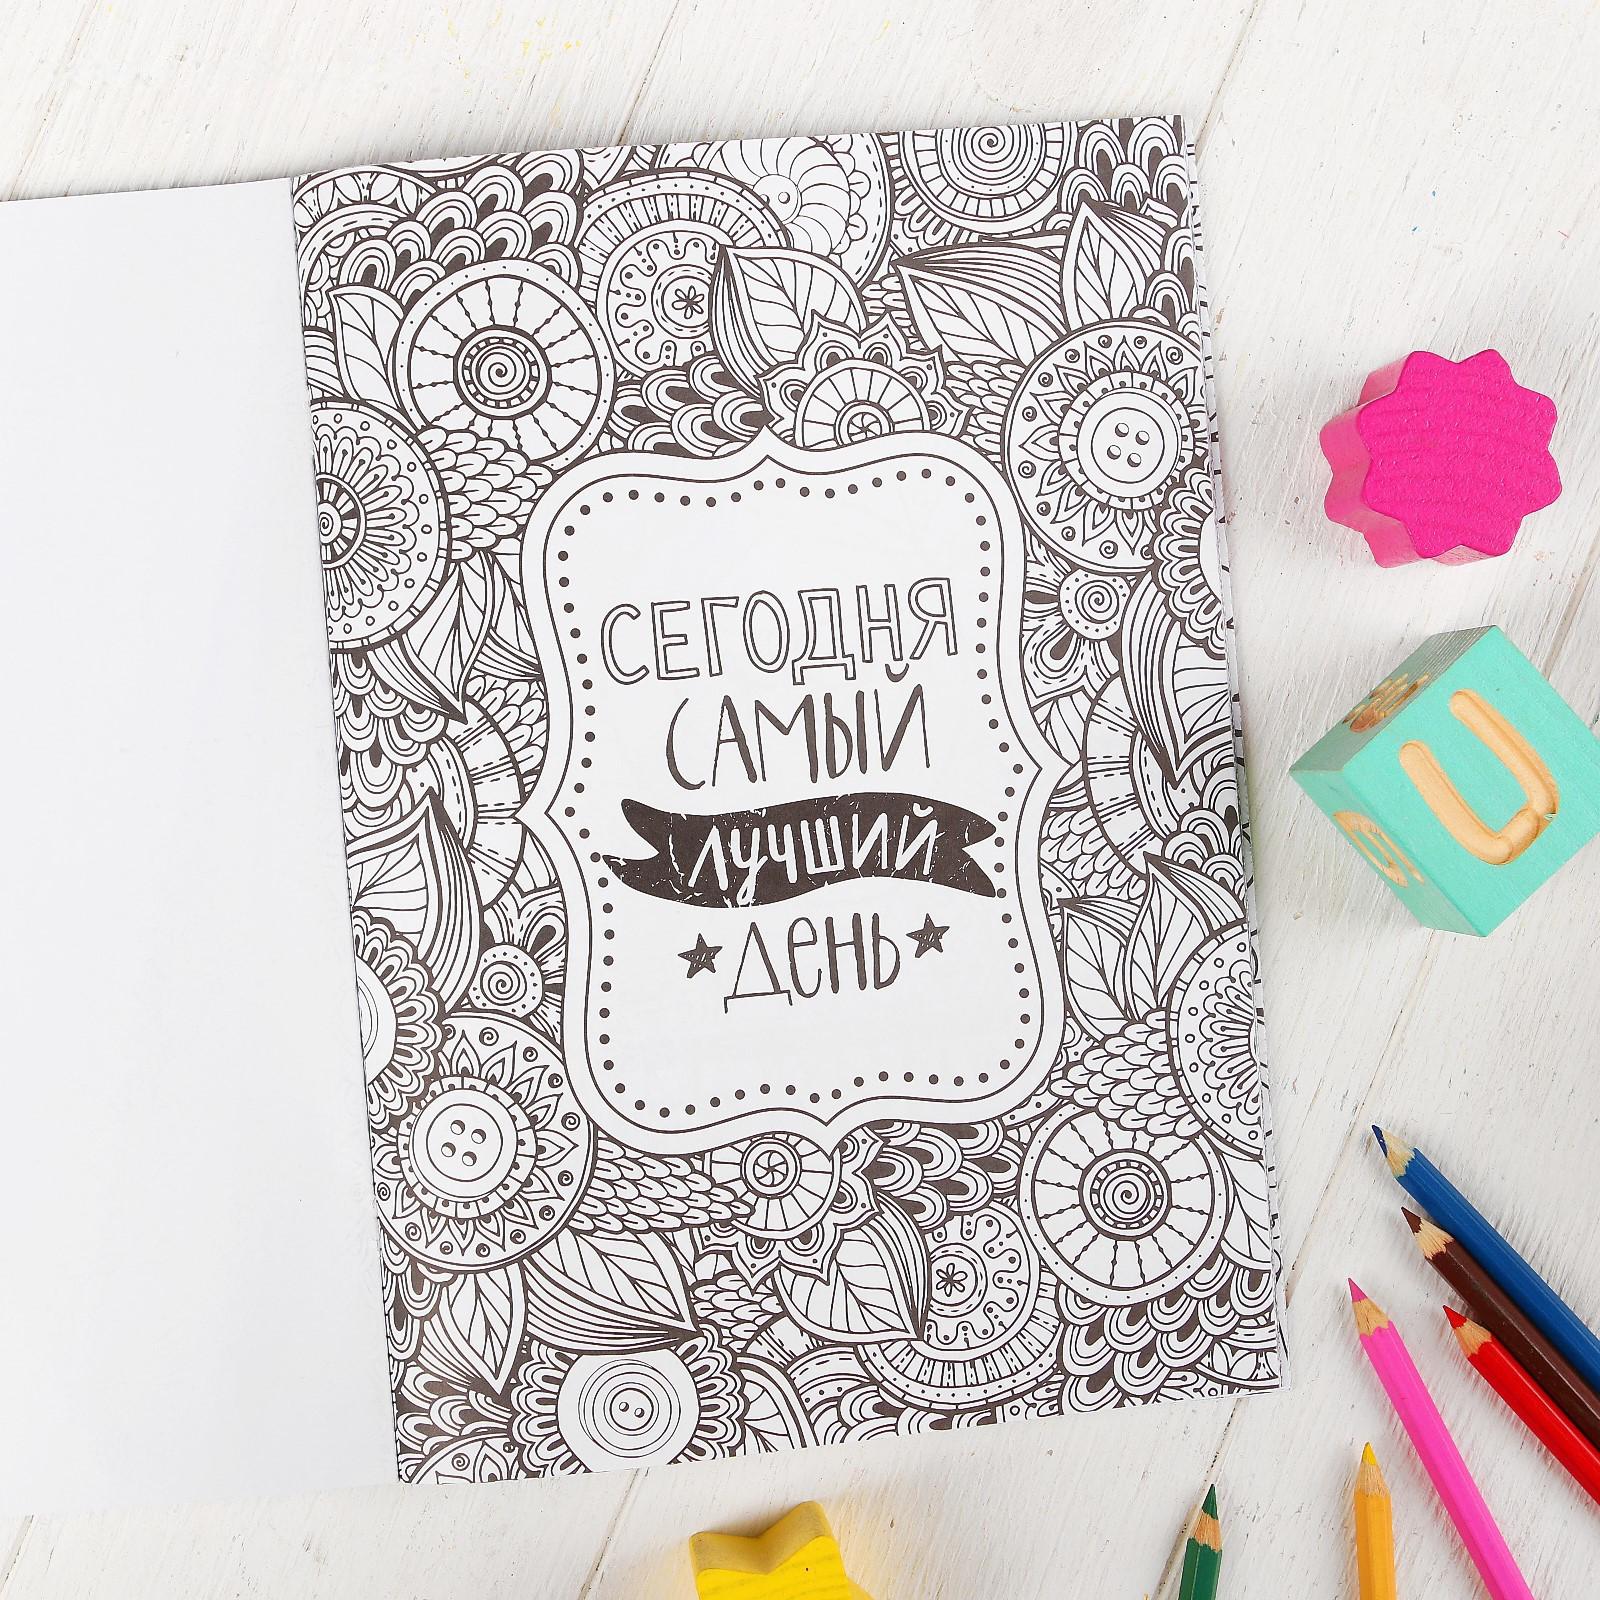 СЕГОДНЯ
САМЫЙ
ЛУЧШИЙ
ДЕНЬ